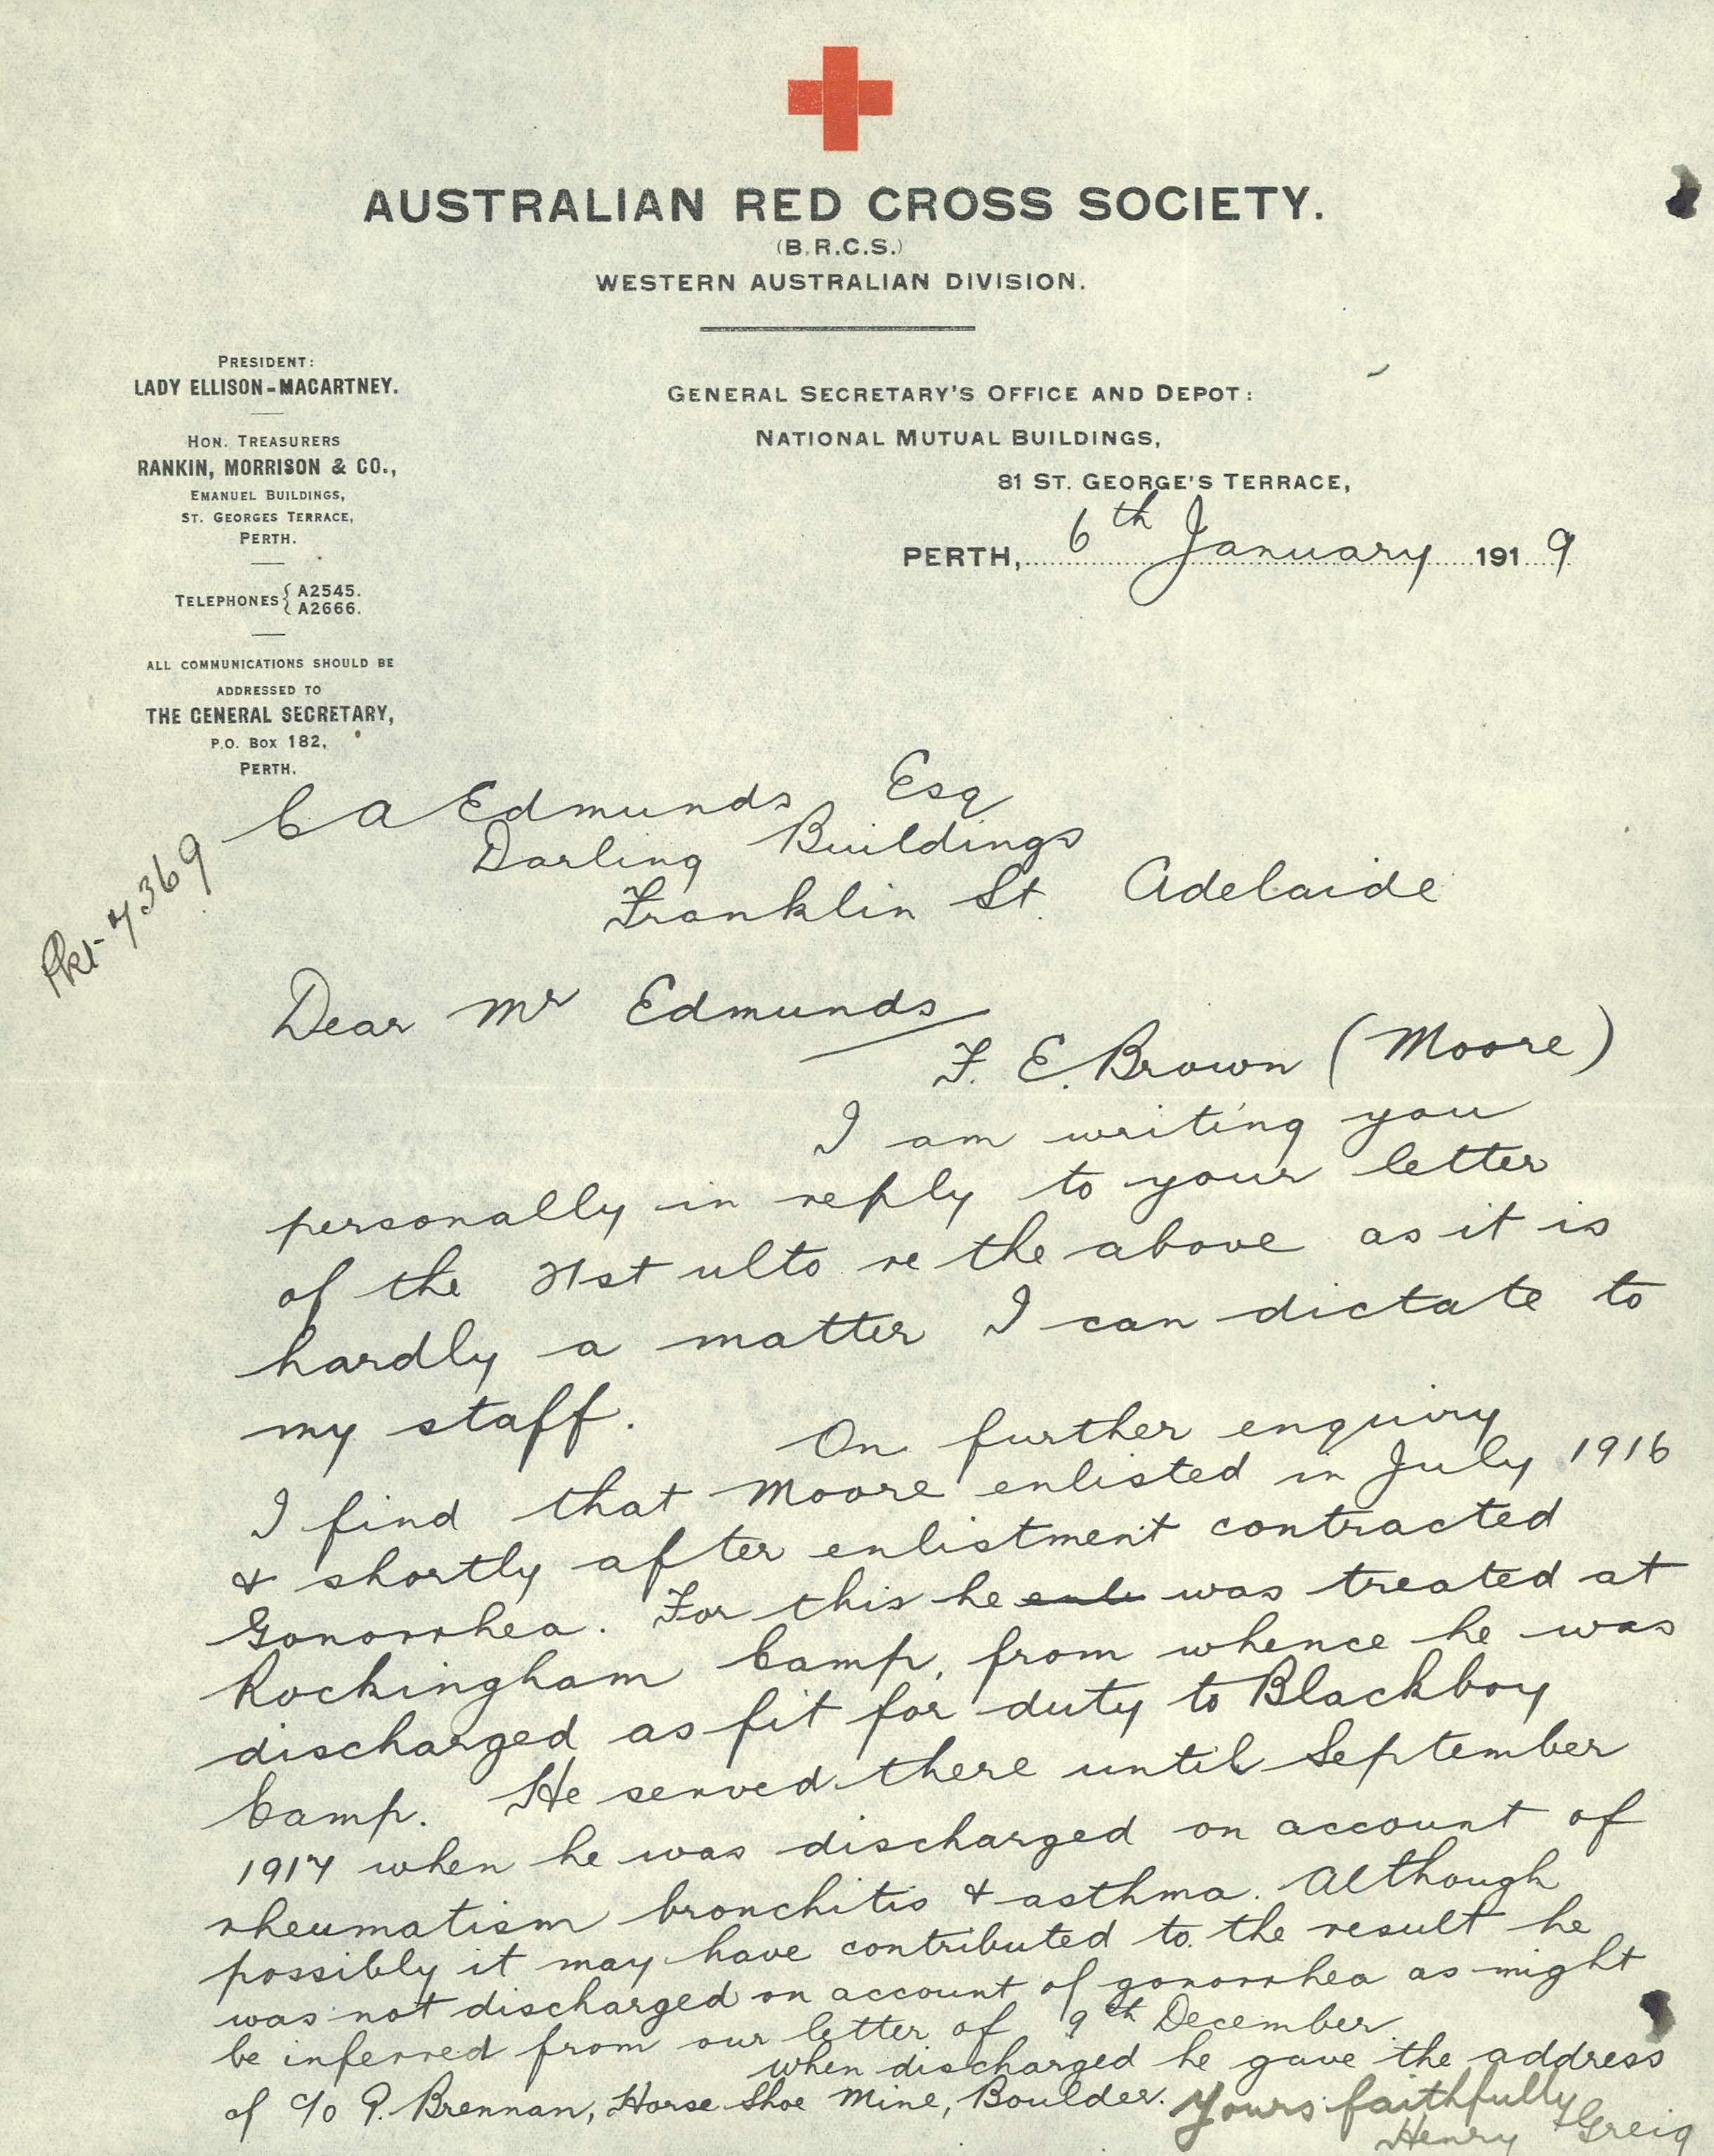 AUSTRALIAN RED CROSS SOCIETY.
(B.R.C.S.)
WESTERN AUSTRALIAN DIVISION.
PRESIDENT:
LADY ELLISON-MACARTNEY.
HON. TREASURERS
RANKIN, MORRISON & CO.,
EMANUEL BUILDINGS,
ST. GEORGES TERRACE,
PERTH.
TELEPHONES { A2545.
A2666.
ALL COMMUNICATIONS SHOULD BE
ADDRESSED TO
THE GENERAL SECRETARY,
P.O. BOX 182,
PERTH.
GENERAL SECRETARY'S OFFICE AND DEPOT:
NATIONAL MUTUAL BUILDINGS,
81 ST. GEORGE'S TERRACE,
PERTH, 6th January 1919
Pkt 7369
C A Edmunds Esq
Darling Buildings
Franklin St. Adelaide
Dear Mr Edmunds
F. E. Brown (Moore)
I am writing you
personally in reply to your letter
of the 31st ulto re the above as it is
hardly a matter I can dictate to
my staff.
On further enquiry
I find that Moore enlisted in July 1916
& shortly after enlistment contracted
Gonorrhea. For this he enli was treated at
Rockingham Camp, from whence he was
discharged as fit for duty to Blackboy
Camp. He served there until September
1917 when he was discharged on account of
rheumatism bronchitis & asthma. Although
possibly it may have contributed to the result he
was not discharged on account of gonorrhea as might
be inferred from our letter of 9th December.
When discharged he gave the address
of c/o P. Brennan, Horse Shoe Mine, Boulder. Yours faithfully
Henry Greig